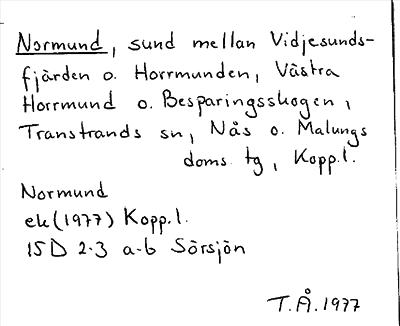 Normund, sund mellan Vidjesunds-
fjärden o. Horrmunden, Västra
Horrmund o. Besparingsskogen,
Transtrands sn, Nås o. Malungs
doms. tg, Kopp.l.
Normund
ek (1977) Kopp.l.
15D 2-3 a-b Sörsjön
T.Å. 1977